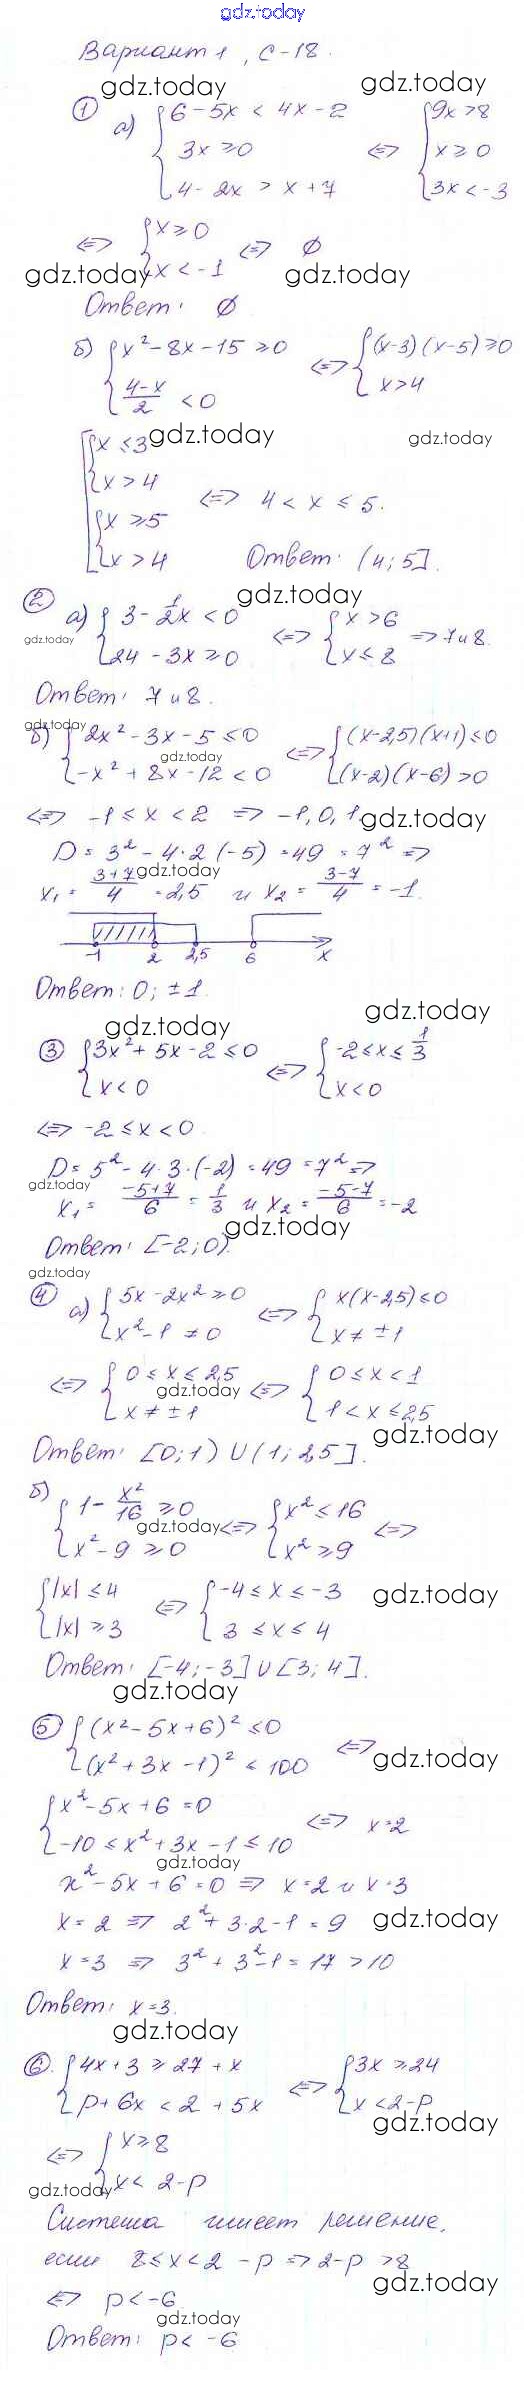 gdz.today
Вариант 1, С-18.
gdz.today gdz.today
① а) { 6-5x < 4x-2 { 9x>8
3x≥0 <=> x≥0
4-2x > x+7 3x<-3
<=> { x≥0 <=> ∅
x<-1
gdz.today gdz.today
Ответ: ∅
б) { x²-8x-15≥0 <=> { (x-3)(x-5)≥0
(4-x)/2 <0 x>4
gdz.today gdz.today
[ { x≤3
x>4 <=> 4<x≤5.
{ x≥5
x>4 Ответ: (4;5].
gdz.today
② а) { 3-1/2x<0 <=> { x>6 => 7и8.
24-3x≥0 x≤8
gdz.today
Ответ: 7и8.
gdz.today
б) { 2x²-3x-5≤0 <=> { (x-2,5)(x+1)≤0
-x²+8x-12<0 (x-2)(x-6)>0
gdz.today
<=> -1≤x<2 => -1,0,1
gdz.today
D=3²-4·2(-5)=49=7² =>
gdz.today
x₁= (3+7)/4 =2,5 и x₂= (3-7)/4 =-1.
-1 2 2,5 6 x
Ответ: 0; ±1.
gdz.today gdz.today
③ { 3x²+5x-2≤0 <=> { -2≤x≤1/3
x<0 x<0
<=> -2≤x<0.
D=5²-4·3·(-2)=49=7² =>
gdz.today
x₁= (-5+7)/6 = 1/3 и x₂= (-5-7)/6 =-2
gdz.today
Ответ: [-2;0).
gdz.today
④ а) { 5x-2x²≥0 <=> { x(x-2,5)≤0
x²-1≠0 x≠±1
<=> { 0≤x≤2,5 <=> { 0≤x<1
x≠±1 1<x≤2,5
gdz.today gdz.today
Ответ: [0;1)∪(1;2,5].
б) { 1-x²/16≥0 <=> { x²≤16 <=>
x²-9≥0 x²≥9
gdz.today
{ |x|≤4 <=> { -4≤x≤-3
|x|≥3 3≤x≤4
gdz.today
Ответ: [-4;-3]∪[3;4].
gdz.today
⑤ { (x²-5x+6)²≤0 <=>
(x²+3x-1)²≤100
gdz.today
{ x²-5x+6=0 <=> x=2
-10≤x²+3x-1≤10
gdz.today
x²-5x+6=0 => x=2 и x=3
x=2 => 2²+3·2-1=9
gdz.today
x=3 => 3²+3²-1=17>10
Ответ: x=3.
gdz.today
⑥. { 4x+3≥27+x <=> { 3x≥24
p+6x<2+5x x<2-p
gdz.today
<=> { x≥8
x<2-p
gdz.today
Система имеет решение,
если 8≤x<2-p => 2-p>8
gdz.today
<=> p<-6
gdz.today
Ответ: p<-6
gdz.today